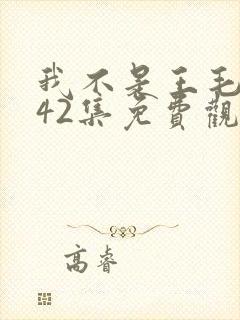 我不是王毛
42集免費觀
高睿